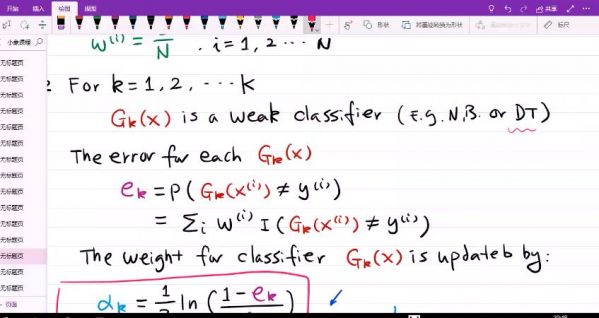 开始 插入 绘图 视图
形状 将墨迹转换为形状 标尺
小象课程
无标题页
无标题页
无标题页
无标题页
无标题页
无标题页
无标题页
无标题页
无标题页
无标题页
无标题页
无标题页
无标题页
页面
W⁽ⁱ⁾ = 1/N . i = 1, 2 ... N
For k = 1, 2, ... K
Gk(x) is a weak classifier (E.g. N.B. or DT)
The error for each Gk(x)
ek = P(Gk(x⁽ⁱ⁾) ≠ y⁽ⁱ⁾)
= Σi W⁽ⁱ⁾ I(Gk(x⁽ⁱ⁾) ≠ y⁽ⁱ⁾)
The weight for classifier Gk(x) is updateb by:
αk = 1/2 ln (1 - ek